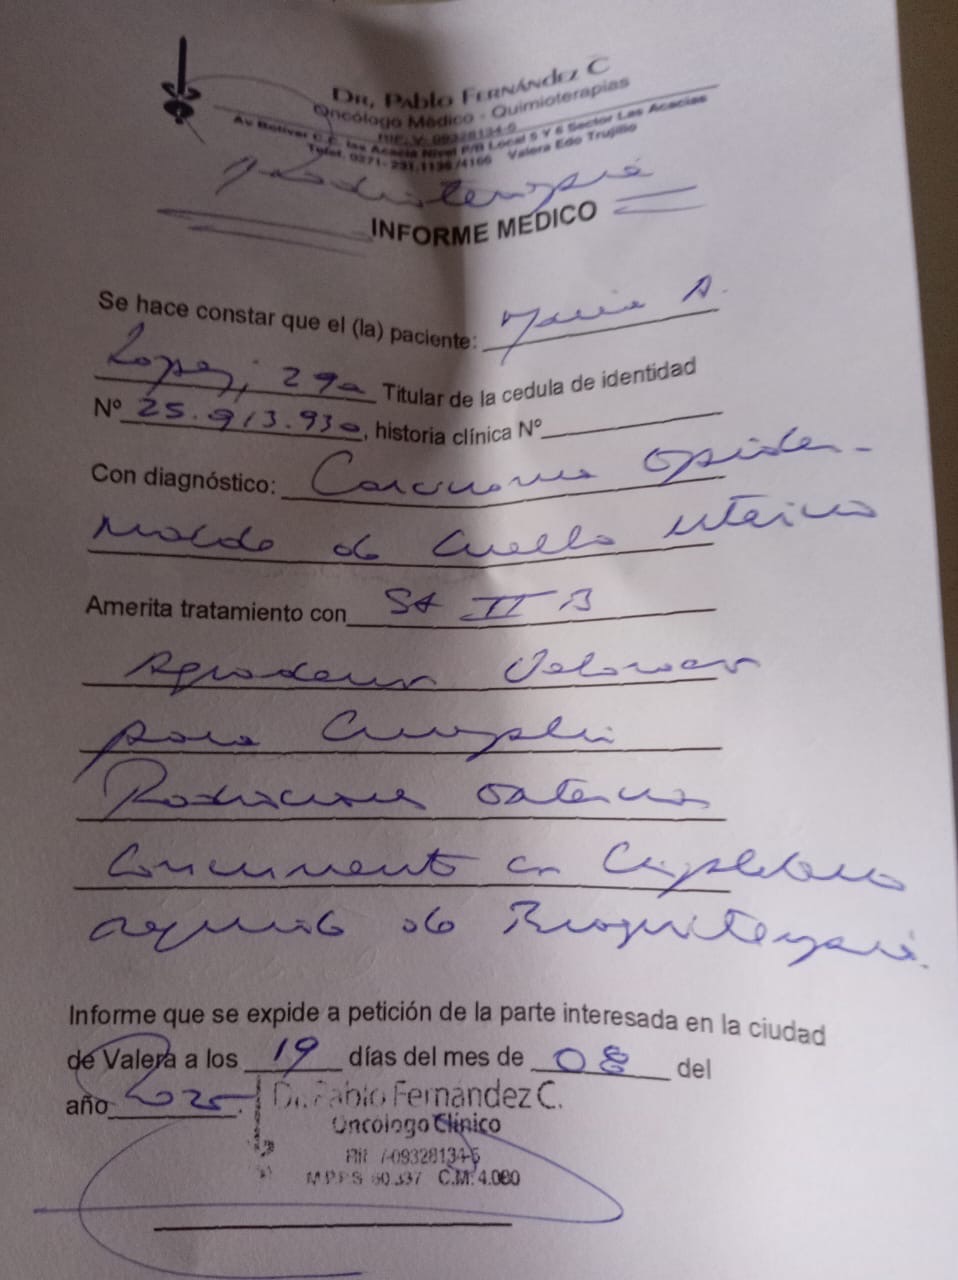 Dr. Pablo Fernández C
Oncólogo Médico - Quimioterapias
RIF. V- 09328134-5
Av Bolivar C.C. las Acacia Nivel P/B Local 5 Y 6 Sector Las Acacias
Telef. 0271- 231.1136 /4166 Valera Edo Trujillo
Radioterapia
INFORME MEDICO
Se hace constar que el (la) paciente: Maria A.
Lopez, 29a Titular de la cedula de identidad
Nº 25.913.930, historia clínica Nº
Con diagnóstico: Carcinoma epider-
moide de Cuello uterino
Amerita tratamiento con St II B
Agradecer Valorar
para Cumplir
Radiaciones externas
Concurrente en
esquema de Bioquiterapia.
Informe que se expide a petición de la parte interesada en la ciudad
de Valera a los 19 días del mes de 08 del
año 2025.
Dr. Pablo Fernández C.
Oncologo Clínico
RIF V-09328134-5
M.P.P.S 60.337 C.M. 4.080